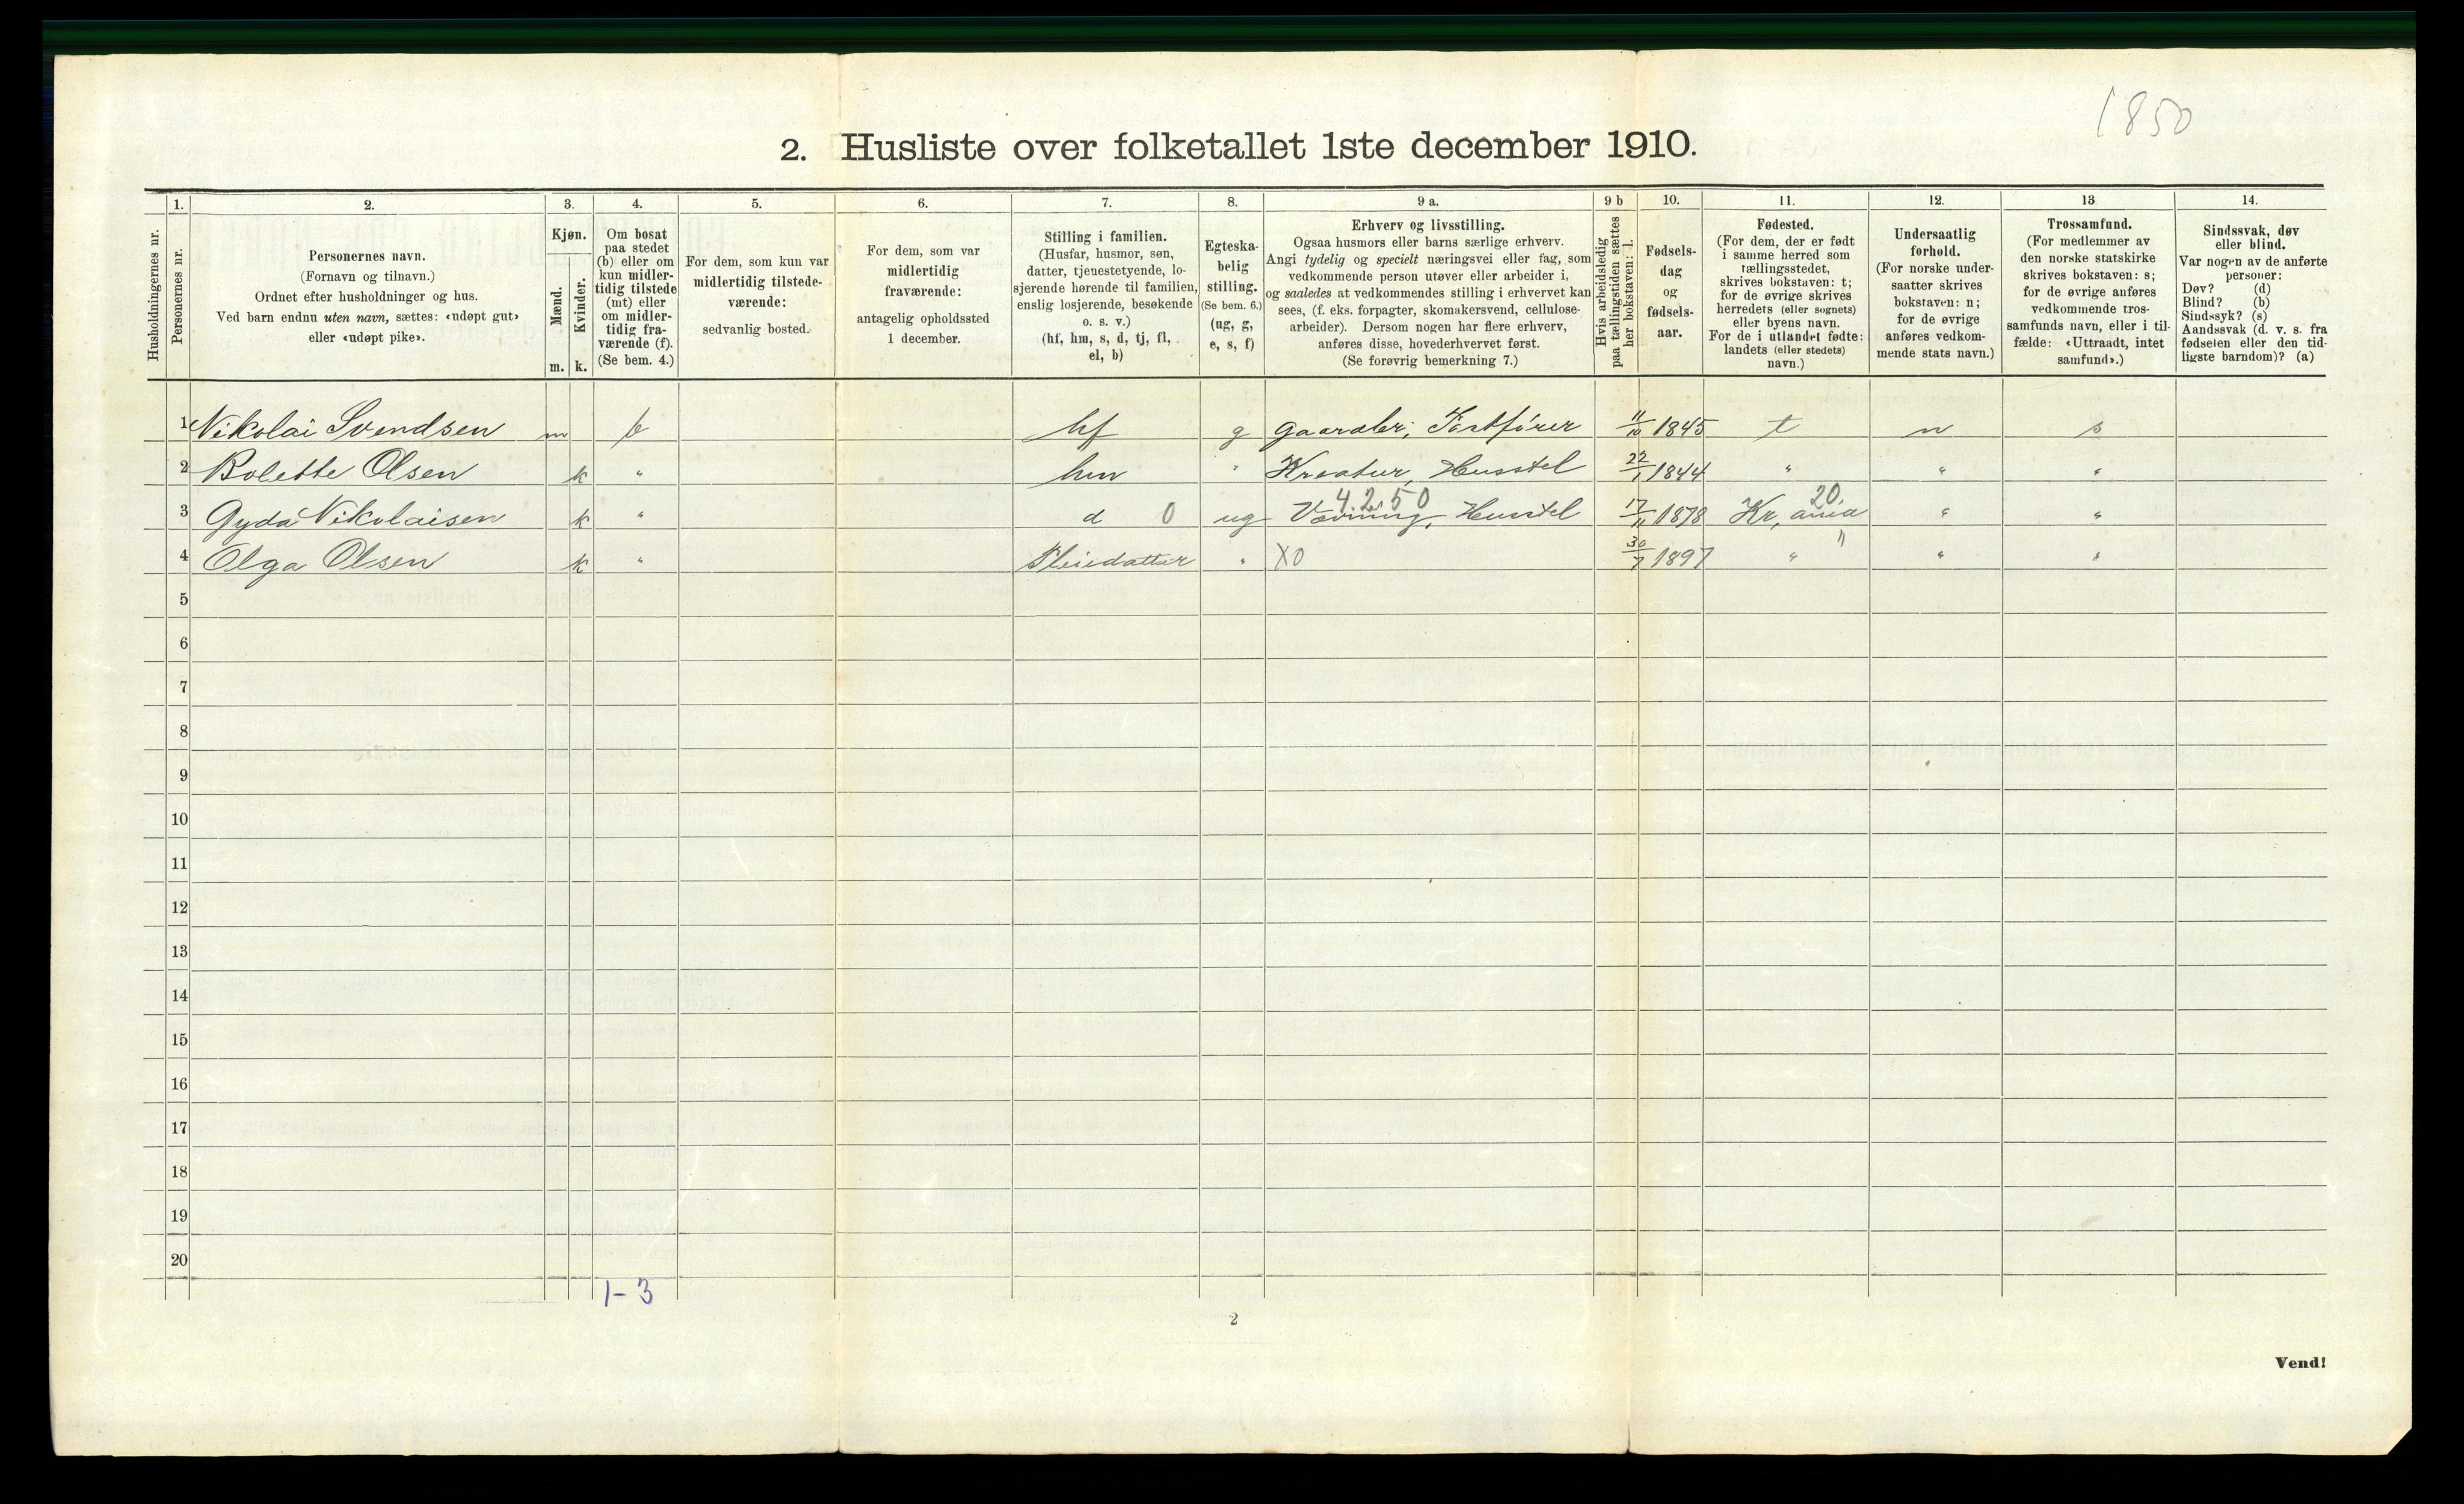 1850
2. Husliste over folketallet 1ste december 1910.
Husholdningernes nr.
1.
Personernes nr.
2.
Personernes navn.
(Fornavn og tilnavn.)
Ordnet efter husholdninger og hus.
Ved barn endnu uten navn, sættes: «udøpt gut»
eller «udøpt pike».
3.
Kjøn.
Mænd.
Kvinder.
m. k.
4.
Om bosat
paa stedet
(b) eller om
kun midler-
tidig tilstede
(mt) eller
om midler-
tidig fra-
værende (f).
(Se bem. 4.)
5.
For dem, som kun var
midlertidig tilstede-
værende:
sedvanlig bosted.
6.
For dem, som var
midlertidig
fraværende:
antagelig opholdssted
1 december.
7.
Stilling i familien.
(Husfar, husmor, søn,
datter, tjenestetyende, lo-
sjerende hørende til familien,
enslig losjerende, besøkende
o. s. v.)
(hf, hm, s, d, tj, fl,
el, b)
8.
Egteska-
belig
stilling.
(Se bem. 6.)
(ug, g,
e, s, f)
9 a.
Erhverv og livsstilling.
Ogsaa husmors eller barns særlige erhverv.
Angi tydelig og specielt næringsvei eller fag, som
vedkommende person utøver eller arbeider i,
og saaledes at vedkommendes stilling i erhvervet kan
sees, (f. eks. forpagter, skomakersvend, cellulose-
arbeider). Dersom nogen har flere erhverv,
anføres disse, hovederhvervet først.
(Se forøvrig bemerkning 7.)
9 b
Hvis arbeidsledig
paa tællingstiden sættes
her bokstaven: l.
10.
Fødsels-
dag
og
fødsels-
aar.
11.
Fødested.
(For dem, der er født
i samme herred som
tællingsstedet,
skrives bokstaven: t;
for de øvrige skrives
herredets (eller sognets)
eller byens navn.
For de i utlandet fødte:
landets (eller stedets)
navn.)
12.
Undersaatlig
forhold.
(For norske under-
saatter skrives
bokstaven: n;
for de øvrige
anføres vedkom-
mende stats navn.)
13
Trossamfund.
(For medlemmer av
den norske statskirke
skrives bokstaven: s;
for de øvrige anføres
vedkommende tros-
samfunds navn, eller i til-
fælde: «Uttraadt, intet
samfund».)
14.
Sindssvak, døv
eller blind.
Var nogen av de anførte
personer:
Døv? (d)
Blind? (b)
Sindssyk? (s)
Aandssvak (d. v. s. fra
fødselen eller den tid-
ligste barndom)? (a)
1 Nikolai Svendsen m b hf g Gaardbr; Postfører 11/10 1845 t n s
2 Bolette Olsen k " hm " Kreatur, Husstel 22/1 1844 " " "
4.2.50 20.
3 Gyda Nikolaisen k " d 0 ug Vævning, Husstel 17/11 1878 Kr, ania " "
4 Olga Olsen k " Pleiedatter " X0 30/7 1897 " " " "
5
6
7
8
9
10
11
12
13
14
15
16
17
18
19
20
1-3
2
Vend!